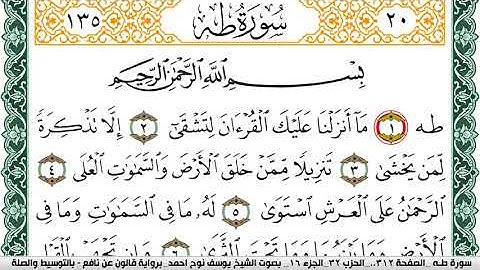 ٢٠ سُورَةُ طه ١٣٥
بِسْمِ اللَّهِ الرَّحْمَٰنِ الرَّحِيمِ
طه ١ مَآ أَنزَلْنَا عَلَيْكَ ٱلْقُرْءَانَ لِتَشْقَىٰٓ ٢ إِلَّا تَذْكِرَةً
لِّمَن يَخْشَىٰ ٣ تَنزِيلًا مِّمَّنْ خَلَقَ ٱلْأَرْضَ وَٱلسَّمَٰوَٰتِ ٱلْعُلَى ٤
ٱلرَّحْمَٰنُ عَلَى ٱلْعَرْشِ ٱسْتَوَىٰ ٥ لَهُۥ مَا فِى ٱلسَّمَٰوَٰتِ وَمَا فِى
ٱلْأَرْضِ وَمَا بَيْنَهُمَا وَمَا تَحْتَ ٱلثَّرَىٰ ٦ وَإِن تَجْهَرْ
سورة طـه_ الصفحة ٣١٢.. الحزب ٣٢_ الجزء ١٦_ بصوت الشيخ يوسف نوح احمد_ برواية قالون عن نافع - بالتوسيط والصلة